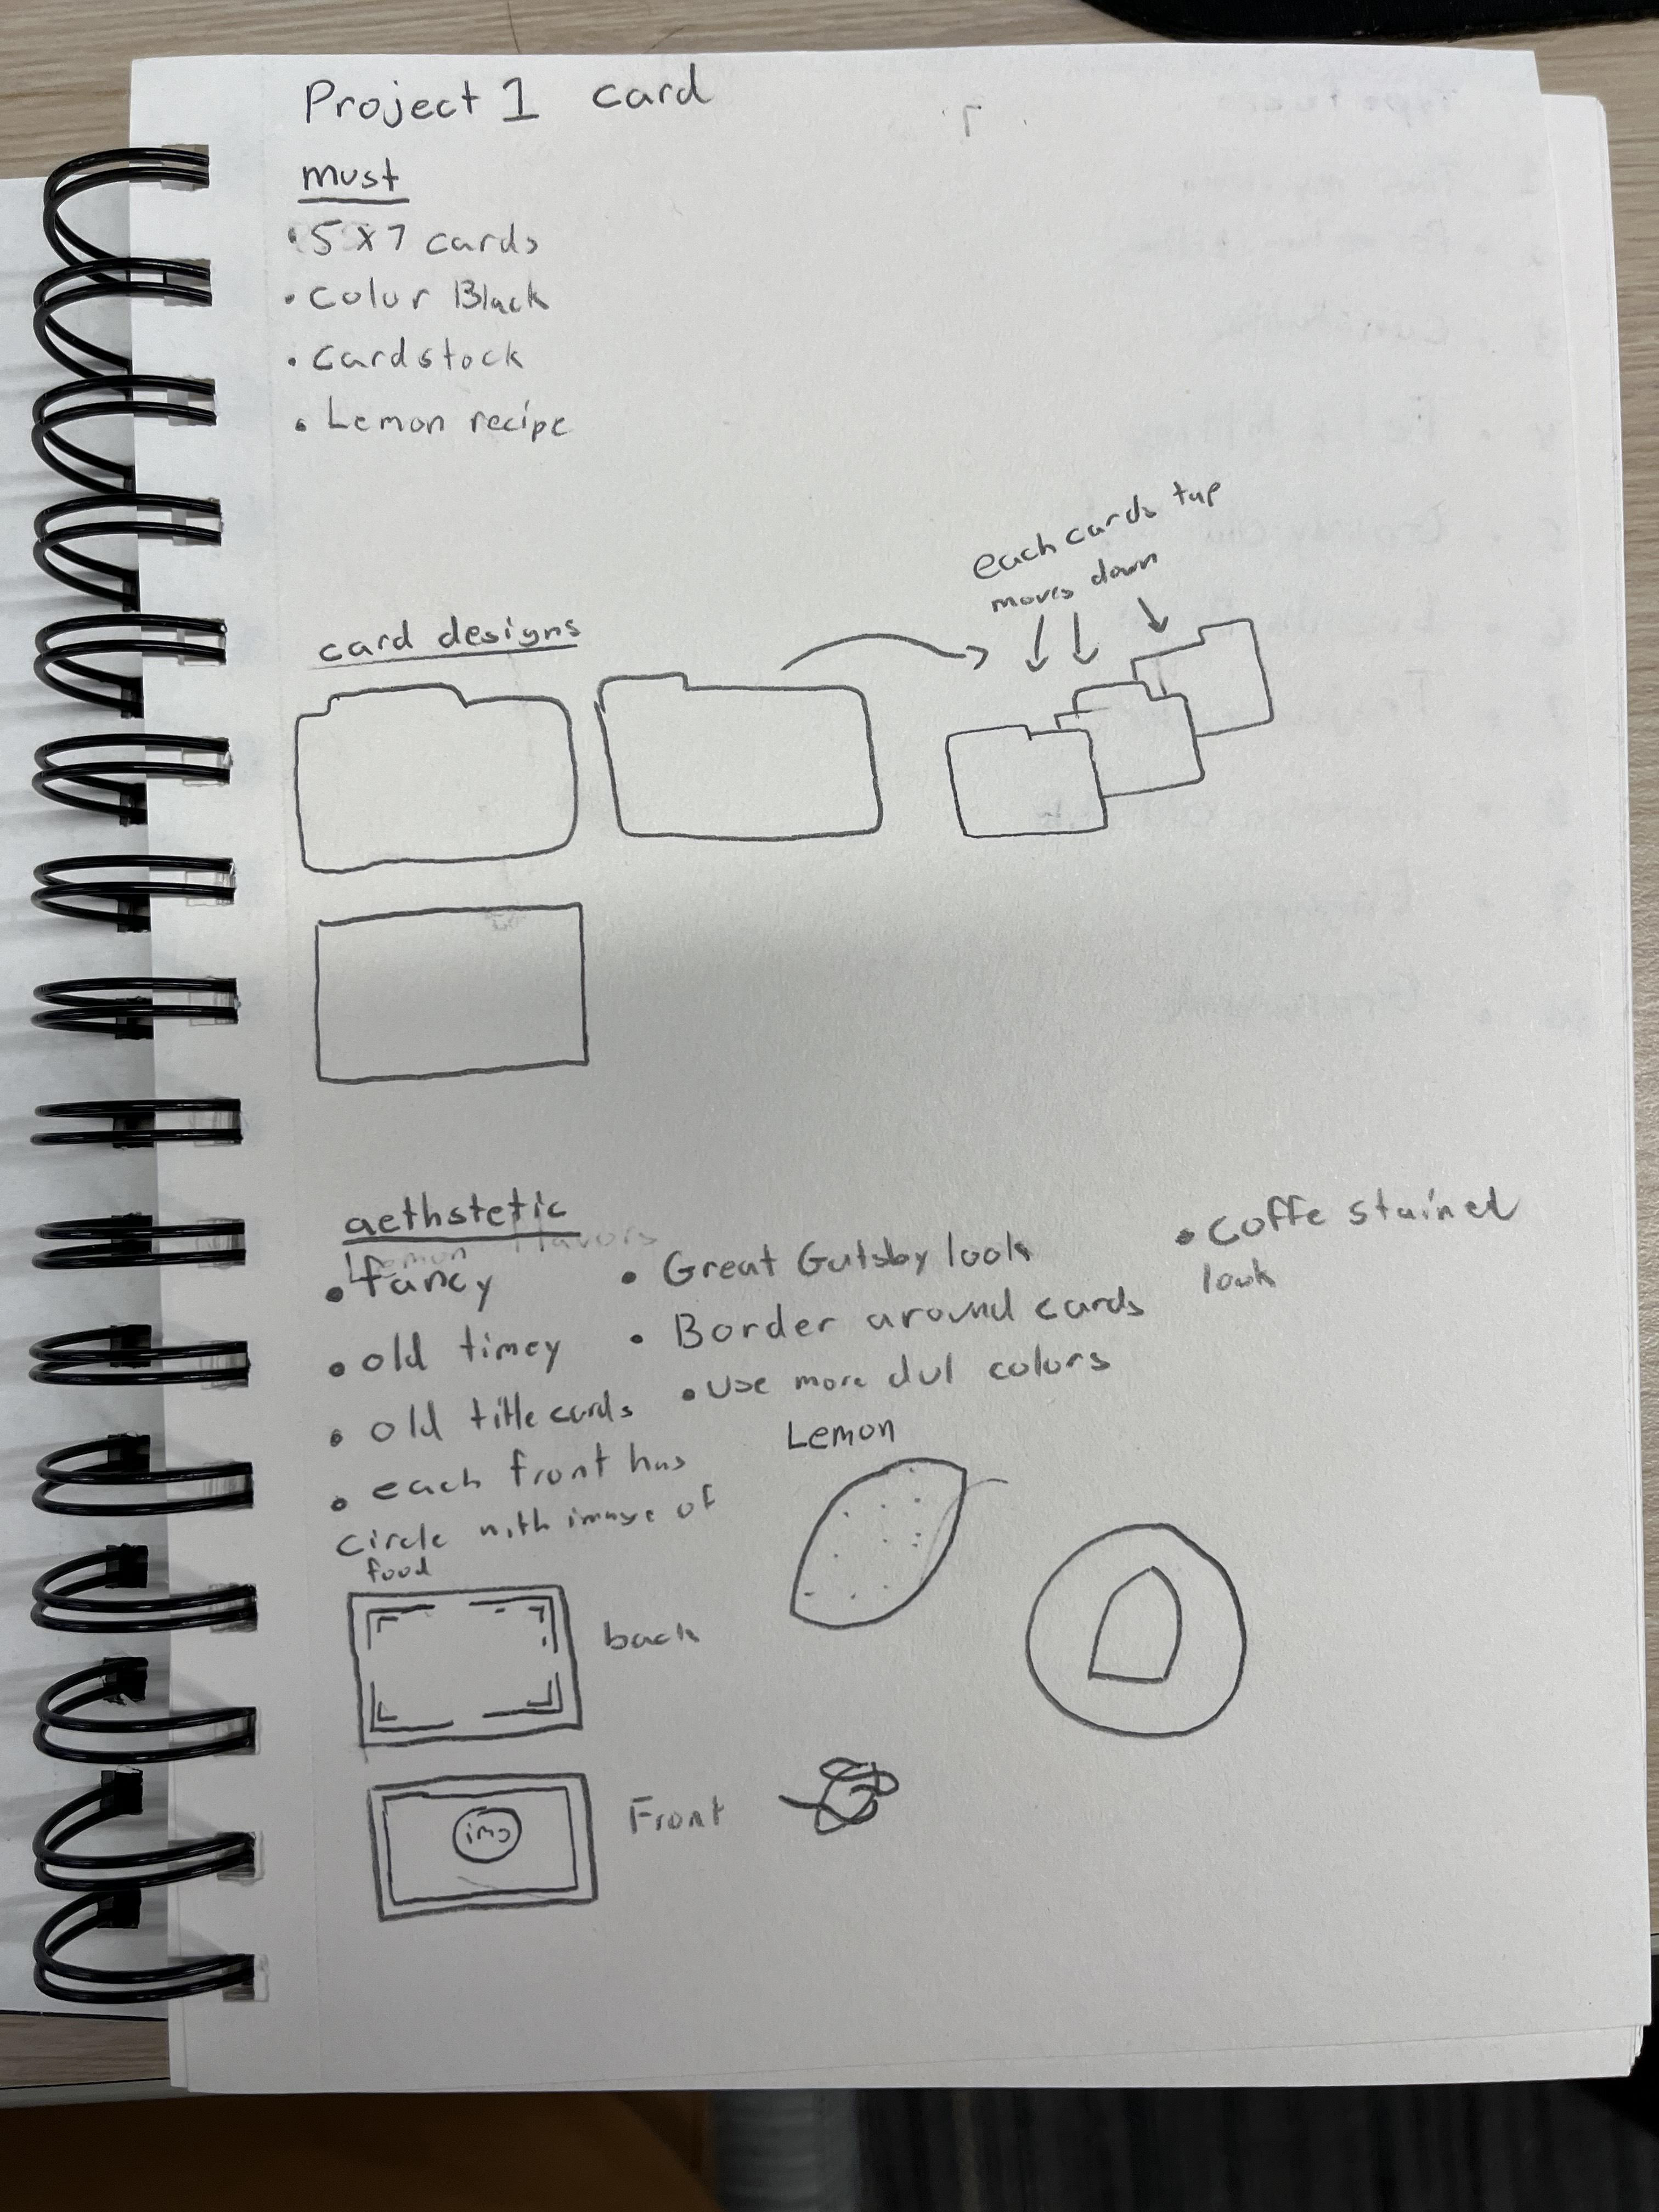 Project 1 card
must
• 5 x 7 cards
• Color Black
• Cardstock
• Lemon recipe
each cards tap
moves down
card designs
aethstetic
Lemon flavors
• fancy
• old timey
• old title cards
• each front has
Circle with image of
food
• Great Gatsby look
• Border around cards
• Use more dul colors
• Coffe stained
look
Lemon
back
img
Front